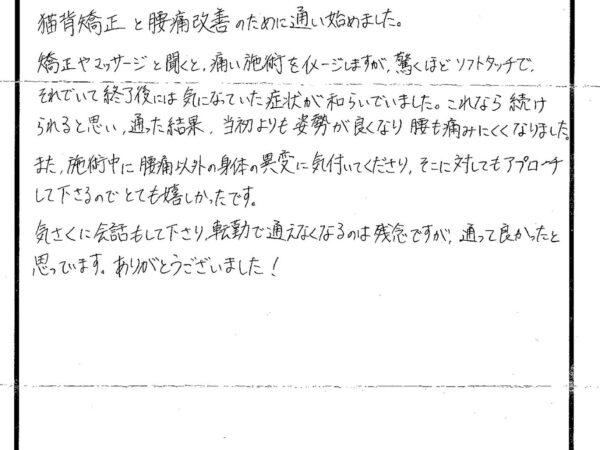 猫背矯正と腰痛改善のために通い始めました。
矯正やマッサージと聞くと、痛い施術をイメージしますが、驚くほどソフトタッチで、
それでいて終了後には気になっていた症状が和らいでいました。これなら続け
られると思い、通った結果、当初よりも姿勢が良くなり腰も痛みにくくなりました。
また、施術中に腰痛以外の身体の異変に気付いてくださり、そこに対してもアプローチ
して下さるのでとても嬉しかったです。
気さくに会話もして下さり、転勤で通えなくなるのは残念ですが、通って良かったと
思っています。ありがとうございました!